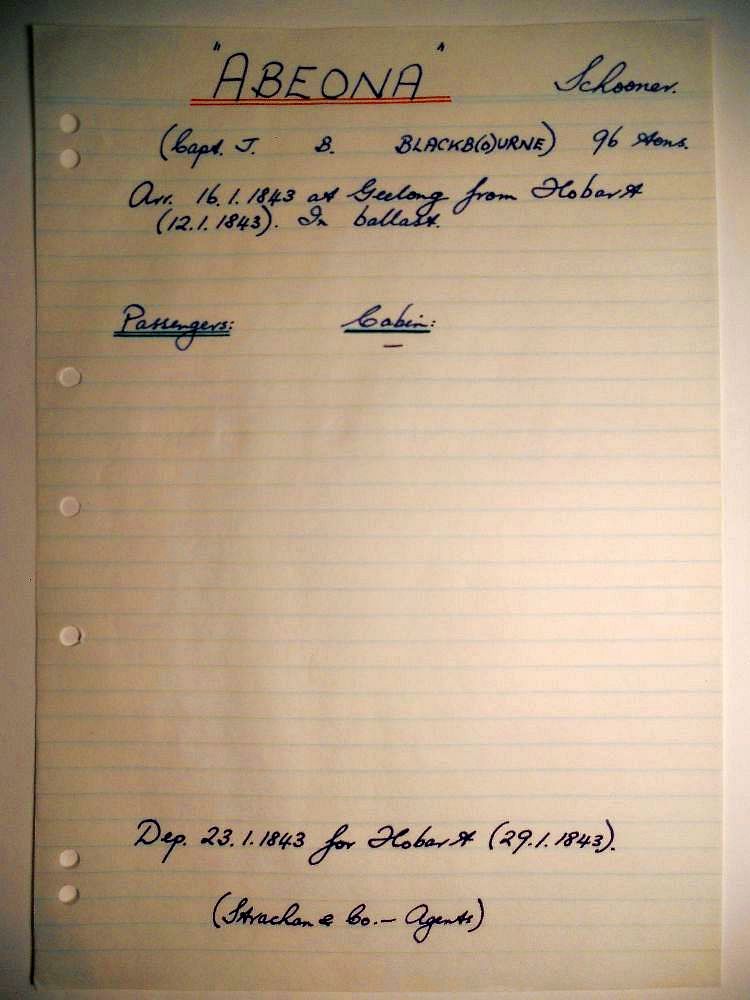 "ABEONA" Schooner.
(Capt. J. B. BLACKB(O)URNE) 96 tons.
Arr. 16.1.1843 at Geelong from Hobart
(12.1.1843). In ballast.
Passengers: Cabin:
—
Dep. 23.1.1843 for Hobart (29.1.1843).
(Strachan & Co. — Agents)